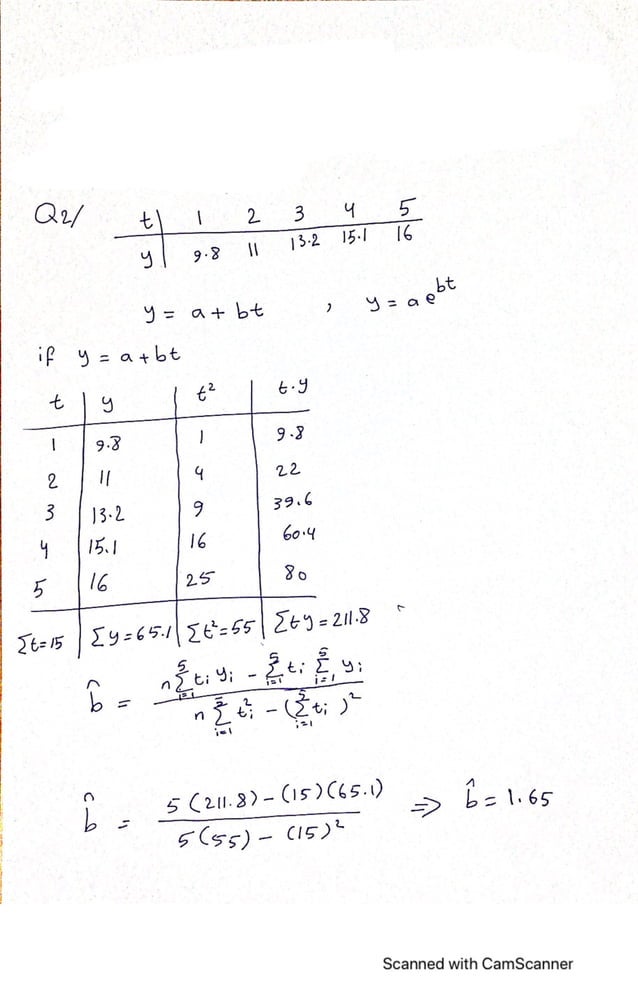 Q2/ t | 1 2 3 4 5
y | 9.8 11 13.2 15.1 16
y = a + bt , y = a e^{bt}
if y = a + bt
t | y | t² | t.y
1 | 9.8 | 1 | 9.8
2 | 11 | 4 | 22
3 | 13.2 | 9 | 39.6
4 | 15.1 | 16 | 60.4
5 | 16 | 25 | 80
Σt=15 | Σy=65.1 | Σt²=55 | Σty=211.8
b̂ = (n Σ_{i=1}^{5} t_i y_i - Σ_{i=1}^{5} t_i Σ_{i=1}^{5} y_i) / (n Σ_{i=1}^{5} t_i² - (Σ_{i=1}^{5} t_i)²)
b̂ = (5(211.8) - (15)(65.1)) / (5(55) - (15)²) ⇒ b̂ = 1.65
Scanned with CamScanner